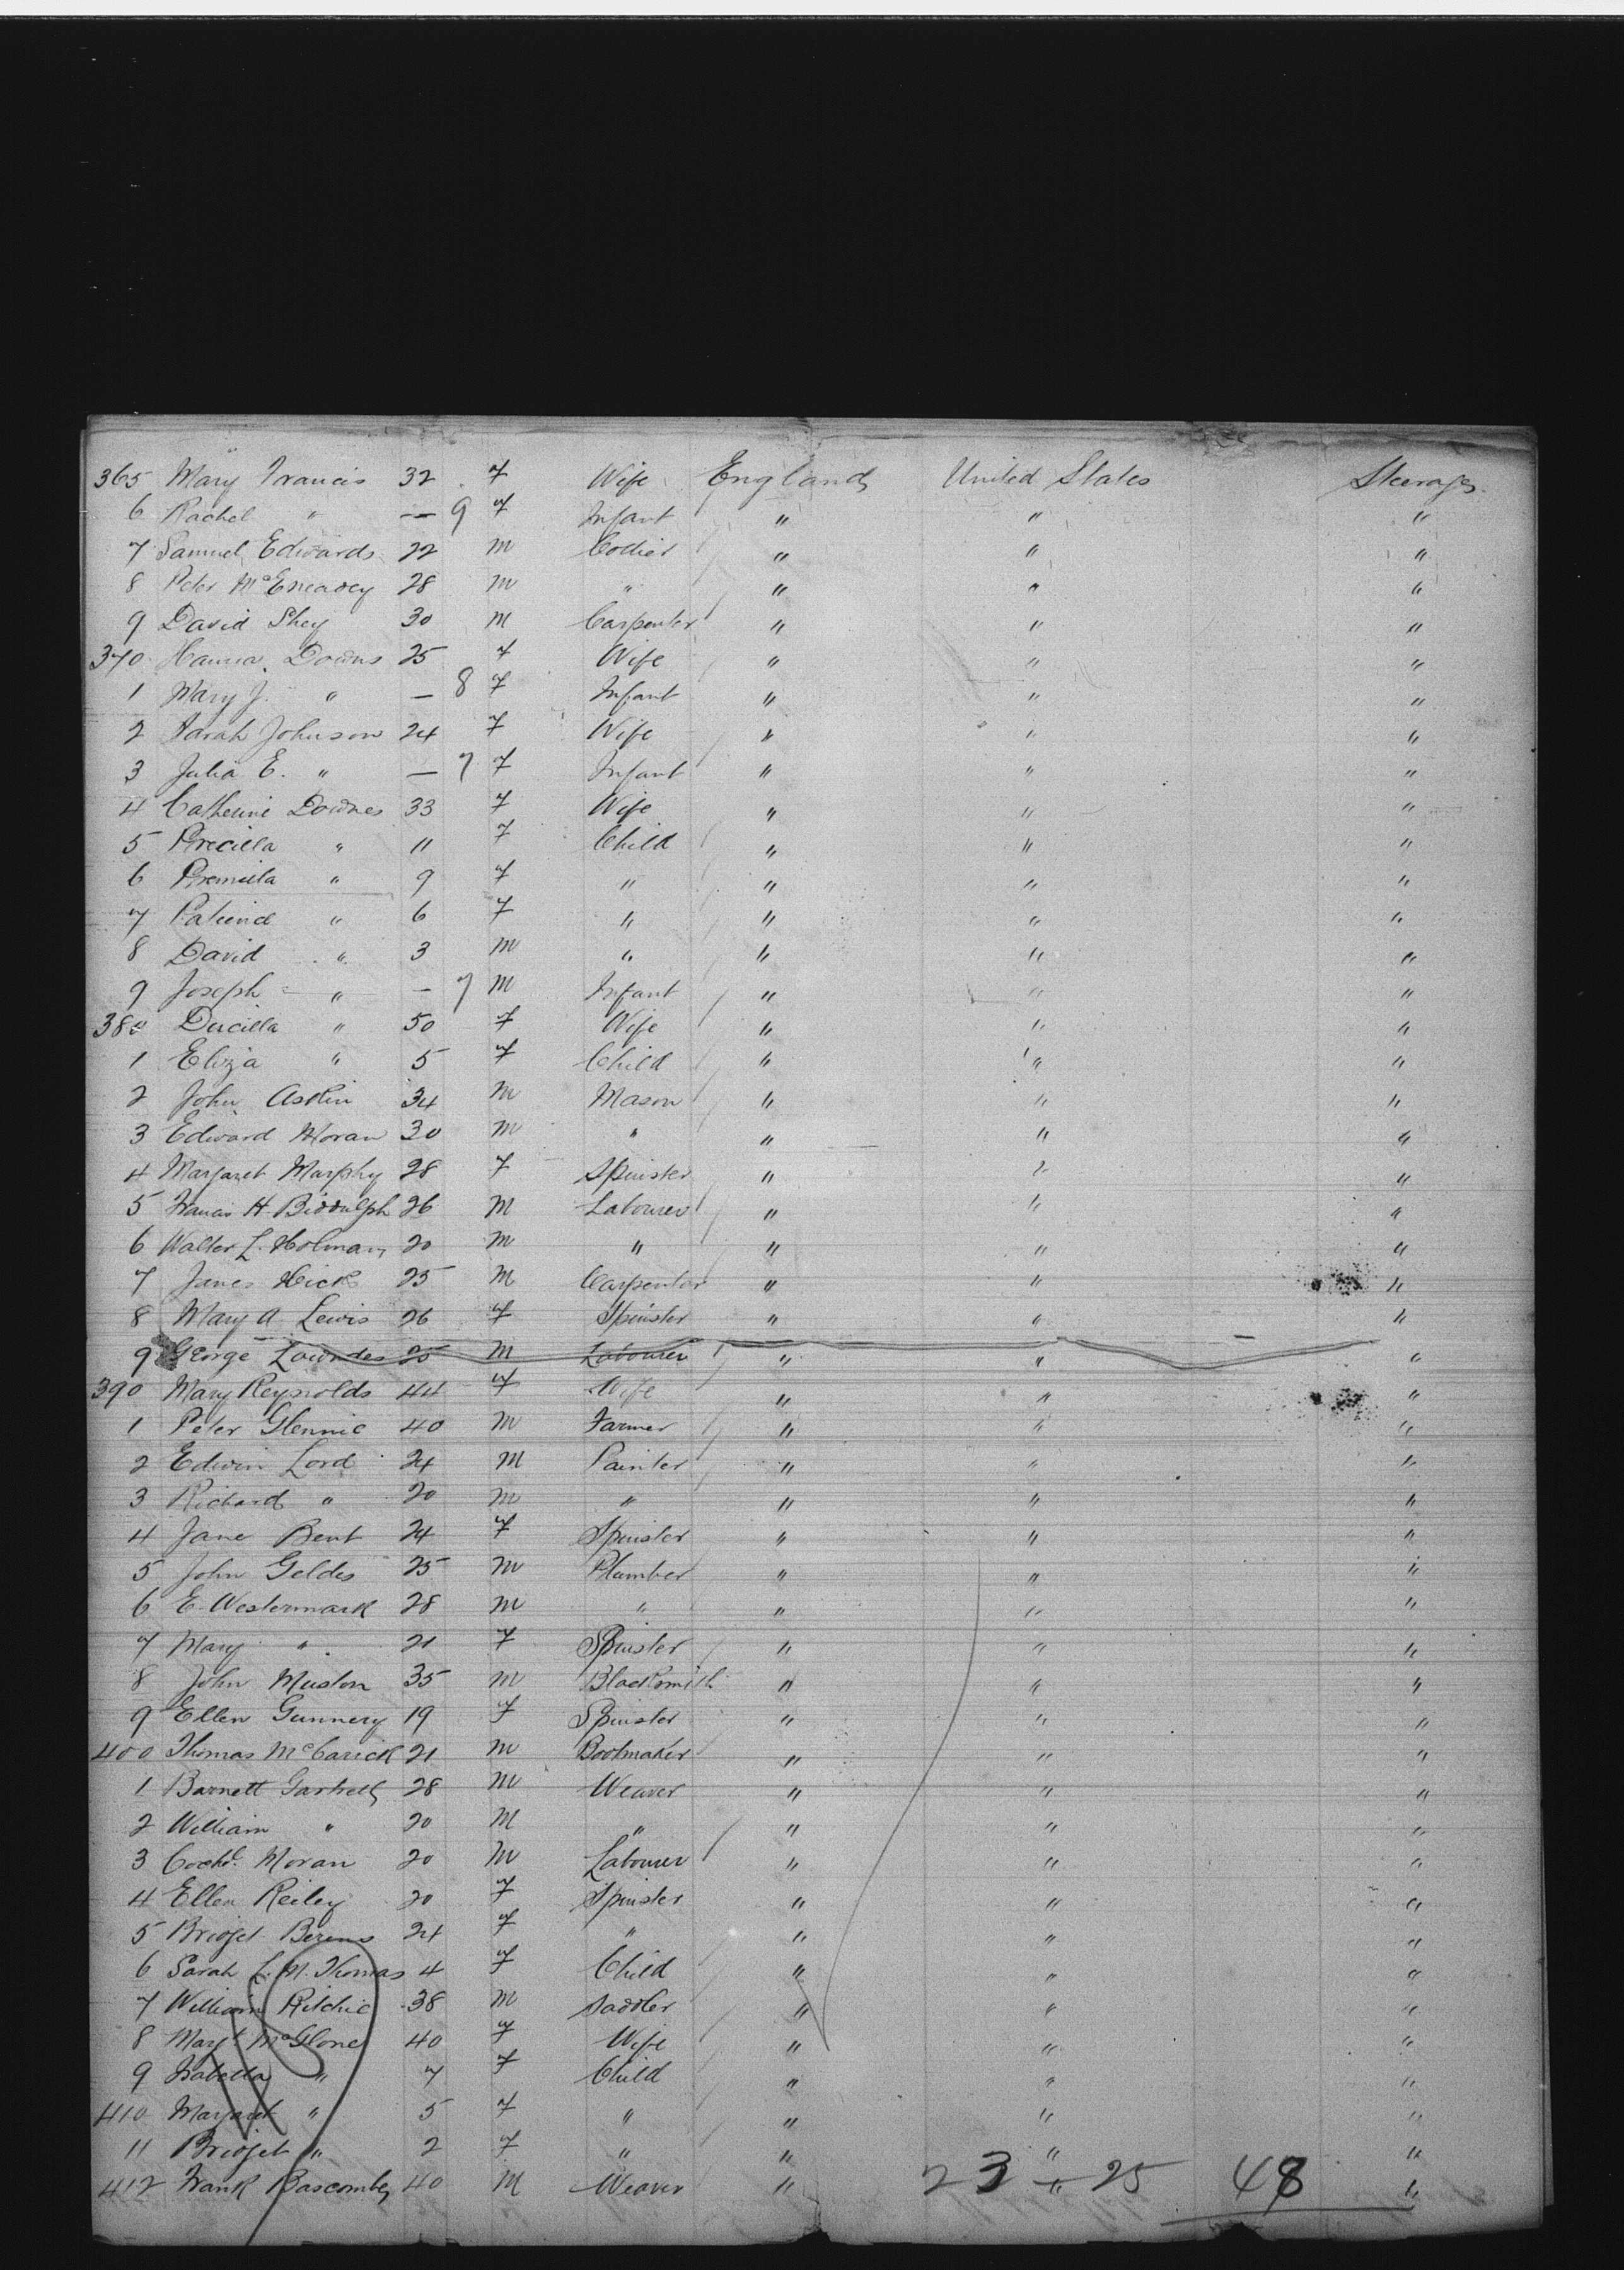 365 Mary Francis 32 F Wife England United States Steerage
6 Rachel " — 9 F Infant " " "
7 Samuel Edwards 22 M Collier " " "
8 Peter McEneavey 28 M " " " "
9 David Shey 30 M Carpenter " " "
370 Hanna Downs 25 F Wife " " "
1 Mary J. " — 8 F Infant " " "
2 Sarah Johnson 24 F Wife " " "
3 Julia E. " — 7 F Infant " " "
4 Catherine Downes 33 F Wife " " "
5 Precilla " 11 F Child " " "
6 " 9 F " " " "
7 " 6 F " " " "
8 David " 3 M " " " "
9 Joseph " — 7 M Infant " " "
380 Ducilla " 50 F Wife " " "
1 Eliza " 5 F Child " " "
2 John Askin 34 M Mason " " "
3 Edward Moran 30 M " " " "
4 Margaret Murphy 28 F Spinster " " "
5 Francis H. Biddulph 26 M Labourer " " "
6 Walter L. Holman 20 M " " " "
7 James Hick 25 M Carpenter " " "
8 Mary A Lewis 26 F Spinster " " "
9 George Lowndes 25 M Labourer " " "
390 Mary Reynolds 44 F Wife " " "
1 Peter Glennie 40 M Farmer " " "
2 Edwin Lord 24 M Painter " " "
3 Richard " 20 M " " " "
4 Jane Bent 24 F Spinster " " "
5 John Geldes 25 M Plumber " " "
6 E. Westermark 28 M " " " "
7 Mary " 21 F Spinster " " "
8 John Muston 35 M Blacksmith " " "
9 Ellen Gunnery 19 F Spinster " " "
400 Thomas McCarick 21 M Bootmaker " " "
1 Barnett Gartrell 28 M Weaver " " "
2 William " 20 M " " " "
3 Moran 20 M Labourer " " "
4 Ellen Reiley 20 F Spinster " " "
5 Bridget 24 F " " " "
6 Sarah L. M. Thomas 4 F Child " " "
7 William Ritchie 38 M Saddler " " "
8 Margt McGlone 40 F Wife " " "
9 Isabella " 7 F Child " " "
410 Margaret " 5 F " " " "
11 Bridget " 2 F " " " "
412 Frank Bascombe 40 M Weaver " " "
23 + 25 48